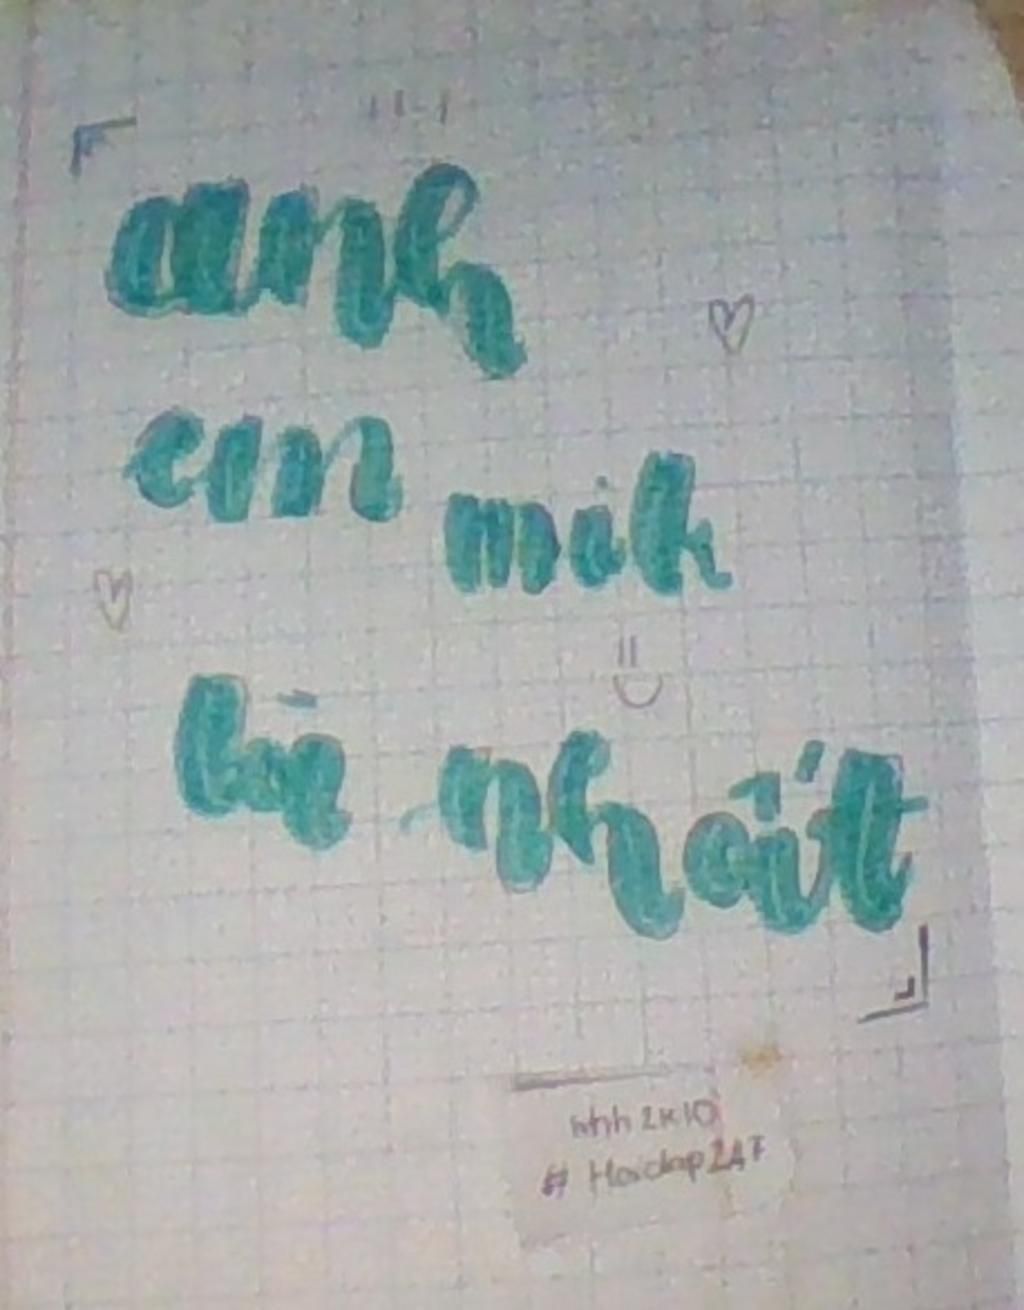 anh
em mik
là nhất
hhh 2k10
# Hoidap247